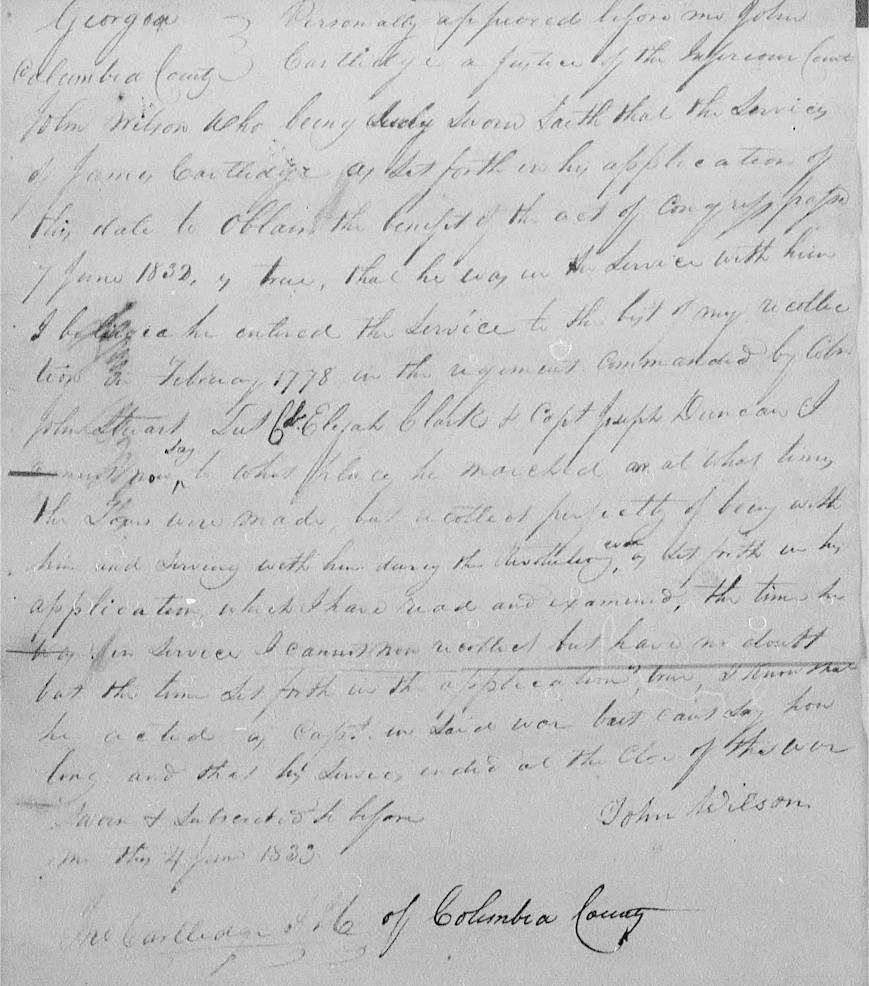 Georgia } Personally appeared before me John
Columbia County } Cartledge a Justice of the Inferiour Court
John Wilson who being duly sworn saith that the services
of James Cartledge as set forth in his application of
this date to obtain the benefit of the act of Congress passd
7 June 1832, is true, that he was in the service with him
I believe he entered the service to the best of my recollec
tion in February 1778 in the regiment commanded by Colo
John Stuart Lut Col. Elijah Clark & Capt Joseph Duncan I
cannot now say to what place he marched or at what times
the Tours were made, but recollect perfectly of being with
him and serving with him during the Revolution war, as set forth in his
application, which I have read and examined, the time he
was in service I cannot now recollect but have no doubt
but the time set forth in the application is true, I know that
he acted as Capt. in said war but cant say how
long and that his services ended at the close of the war
Sworn & subscribed to before John Wilson
me this 4 June 1833
Jno Cartledge J I C of Columbia County